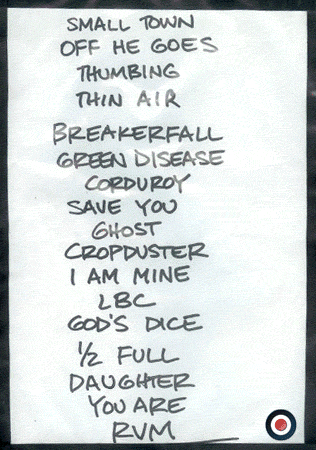 SMALL TOWN
OFF HE GOES
THUMBING
THIN AIR
BREAKERFALL
GREEN DISEASE
CORDUROY
SAVE YOU
GHOST
CROPDUSTER
I AM MINE
LBC
GOD'S DICE
1/2 FULL
DAUGHTER
YOU ARE
RVM